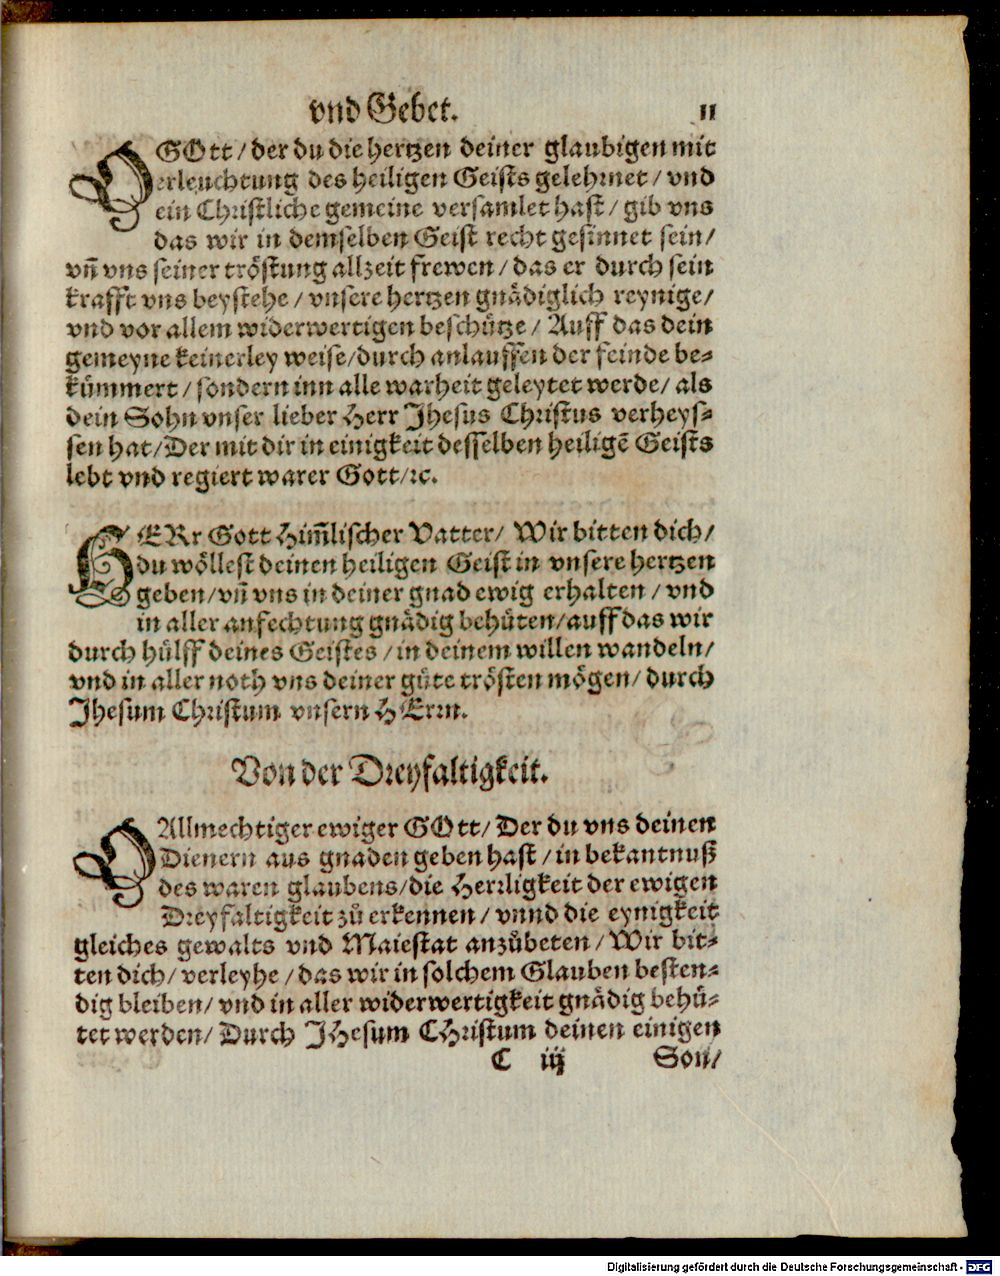 vnd Gebet. 11
O GOtt / der du die hertzen deiner glaubigen mit
erleuchtung des heiligen Geists gelehrnet / vnd
ein Christliche gemeine versamlet hast / gib vns
das wir in demselben Geist recht gesinnet sein /
vñ vns seiner tröstung allzeit frewen / das er durch sein
krafft vns beystehe / vnsere hertzen gnådiglich reynige /
vnd vor allem widerwertigen beschütze / Auff das dein
gemeyne keinerley weise / durch anlauffen der feinde be-
kümmert / sondern inn alle warheit geleytet werde / als
dein Sohn vnser lieber Herr Jhesus Christus verheys-
sen hat / Der mit dir in einigkeit desselben heiligē Geists
lebt vnd regiert warer Gott / ꝛc.
HERr Gott Him̃lischer Vatter / Wir bitten dich /
du wöllest deinen heiligen Geist in vnsere hertzen
geben / vñ vns in deiner gnad ewig erhalten / vnd
in aller anfechtung gnådig behüten / auff das wir
durch hülff deines Geistes / in deinem willen wandeln /
vnd in aller noth vns deiner güte trösten mögen / durch
Jhesum Christum vnsern HErrn.
Von der Dreyfaltigkeit.
O Allmechtiger ewiger GOtt / Der du vns deinen
Dienern aus gnaden geben hast / in bekantnuß
des waren glaubens / die Herrligkeit der ewigen
Dreyfaltigkeit zů erkennen / vnnd die eynigkeit
gleiches gewalts vnd Maiestat anzůbeten / Wir bit-
ten dich / verleyhe / das wir in solchem Glauben besten-
dig bleiben / vnd in aller widerwertigkeit gnådig behü-
tet werden / Durch JHesum CHristum deinen einigen
C iij Son /
Digitalisierung gefördert durch die Deutsche Forschungsgemeinschaft - DFG